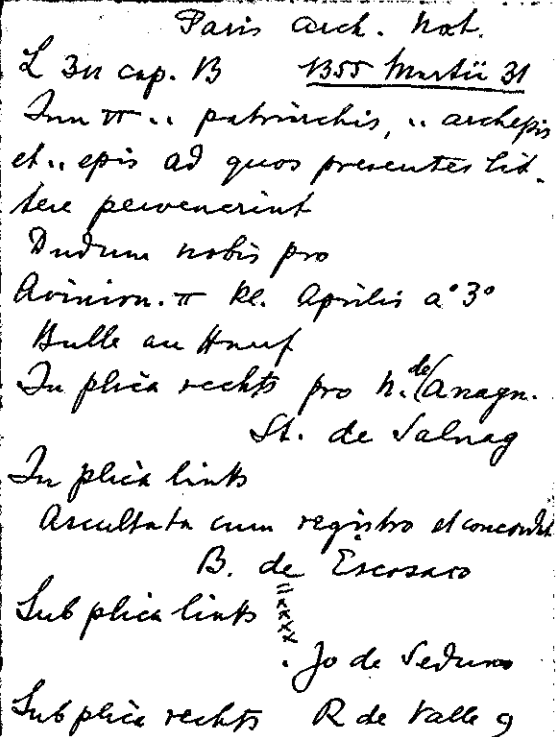 Paris Arch. Nat.
L 311 cap. B 1355 Martii 31
Inn VI .. patriarchis, .. archepis
et .. epis ad quos presentes lit-
tere pervenerint
Dudum nobis pro
Avinion. II kl. Aprilis a° 3°
Bulle an Hanf
In plica rechts pro N. de Anagn.
St. de
In plica links
Ascultata cum registro et concordat
B. de Escosaco
Sub plica links
xxxx
. Jo de Seduno
Sub plica rechts R de Valle 9